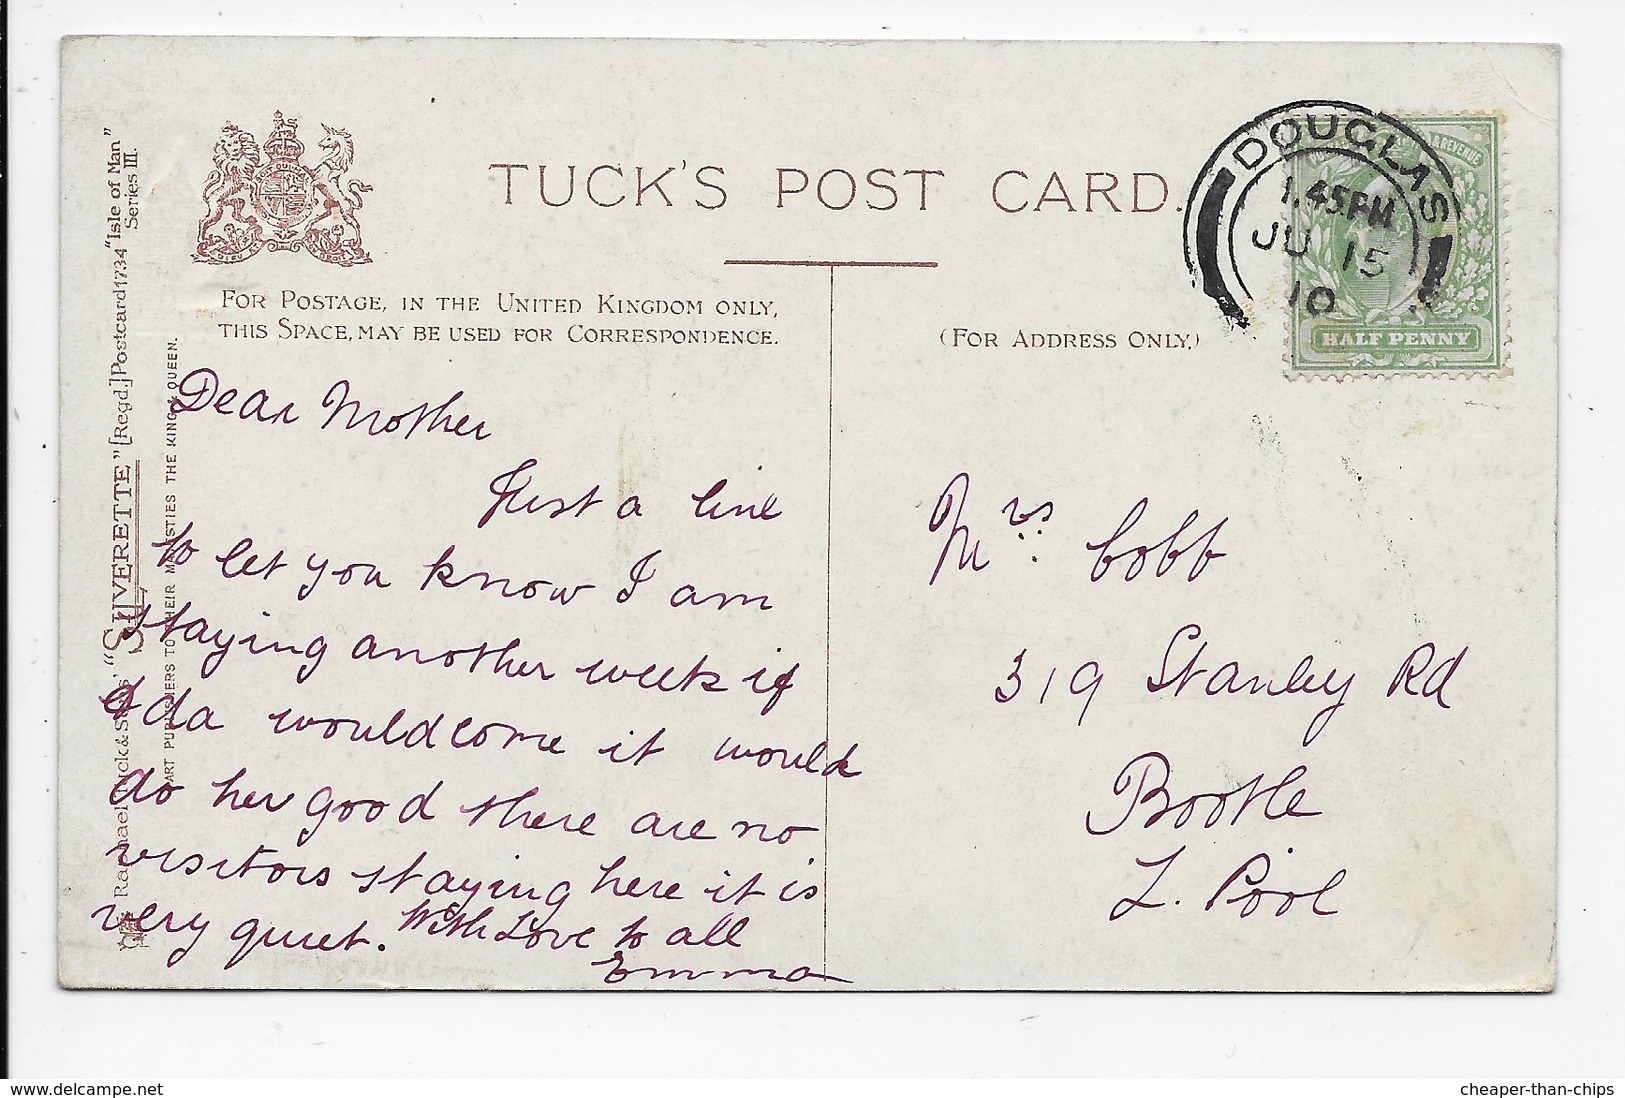 TUCK'S POST CARD.
FOR POSTAGE, IN THE UNITED KINGDOM ONLY,
THIS SPACE, MAY BE USED FOR CORRESPONDENCE.
(FOR ADDRESS ONLY.)
DOUGLAS
1.45PM
JU 15
10
REVENUE
HALF PENNY
Raphael Tuck & Sons' "SILVERETTE" [Regd.] Postcard 1734 "Isle of Man"
Series III.
ART PUBLISHERS TO THEIR MAJESTIES THE KING & QUEEN.
Dear Mother
Just a line
to let you know I am
staying another week if
Ida would come it would
do her good there are no
visitors staying here it is
very quiet. With Love to all
Emma
Mrs Cobb
319 Stanley Rd
Bootle
L. Pool
www.delcampe.net
cheaper-than-chips